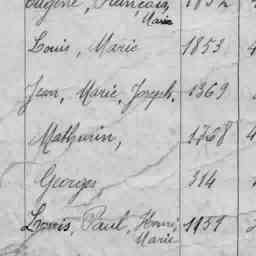 Eugène, François, 1852
Marie
Louis, Marie 1853
Jean, Marie, Joseph. 1369
Mathurin, 1768
Georges 314
Louis, Paul, Henri, 1151
Marie